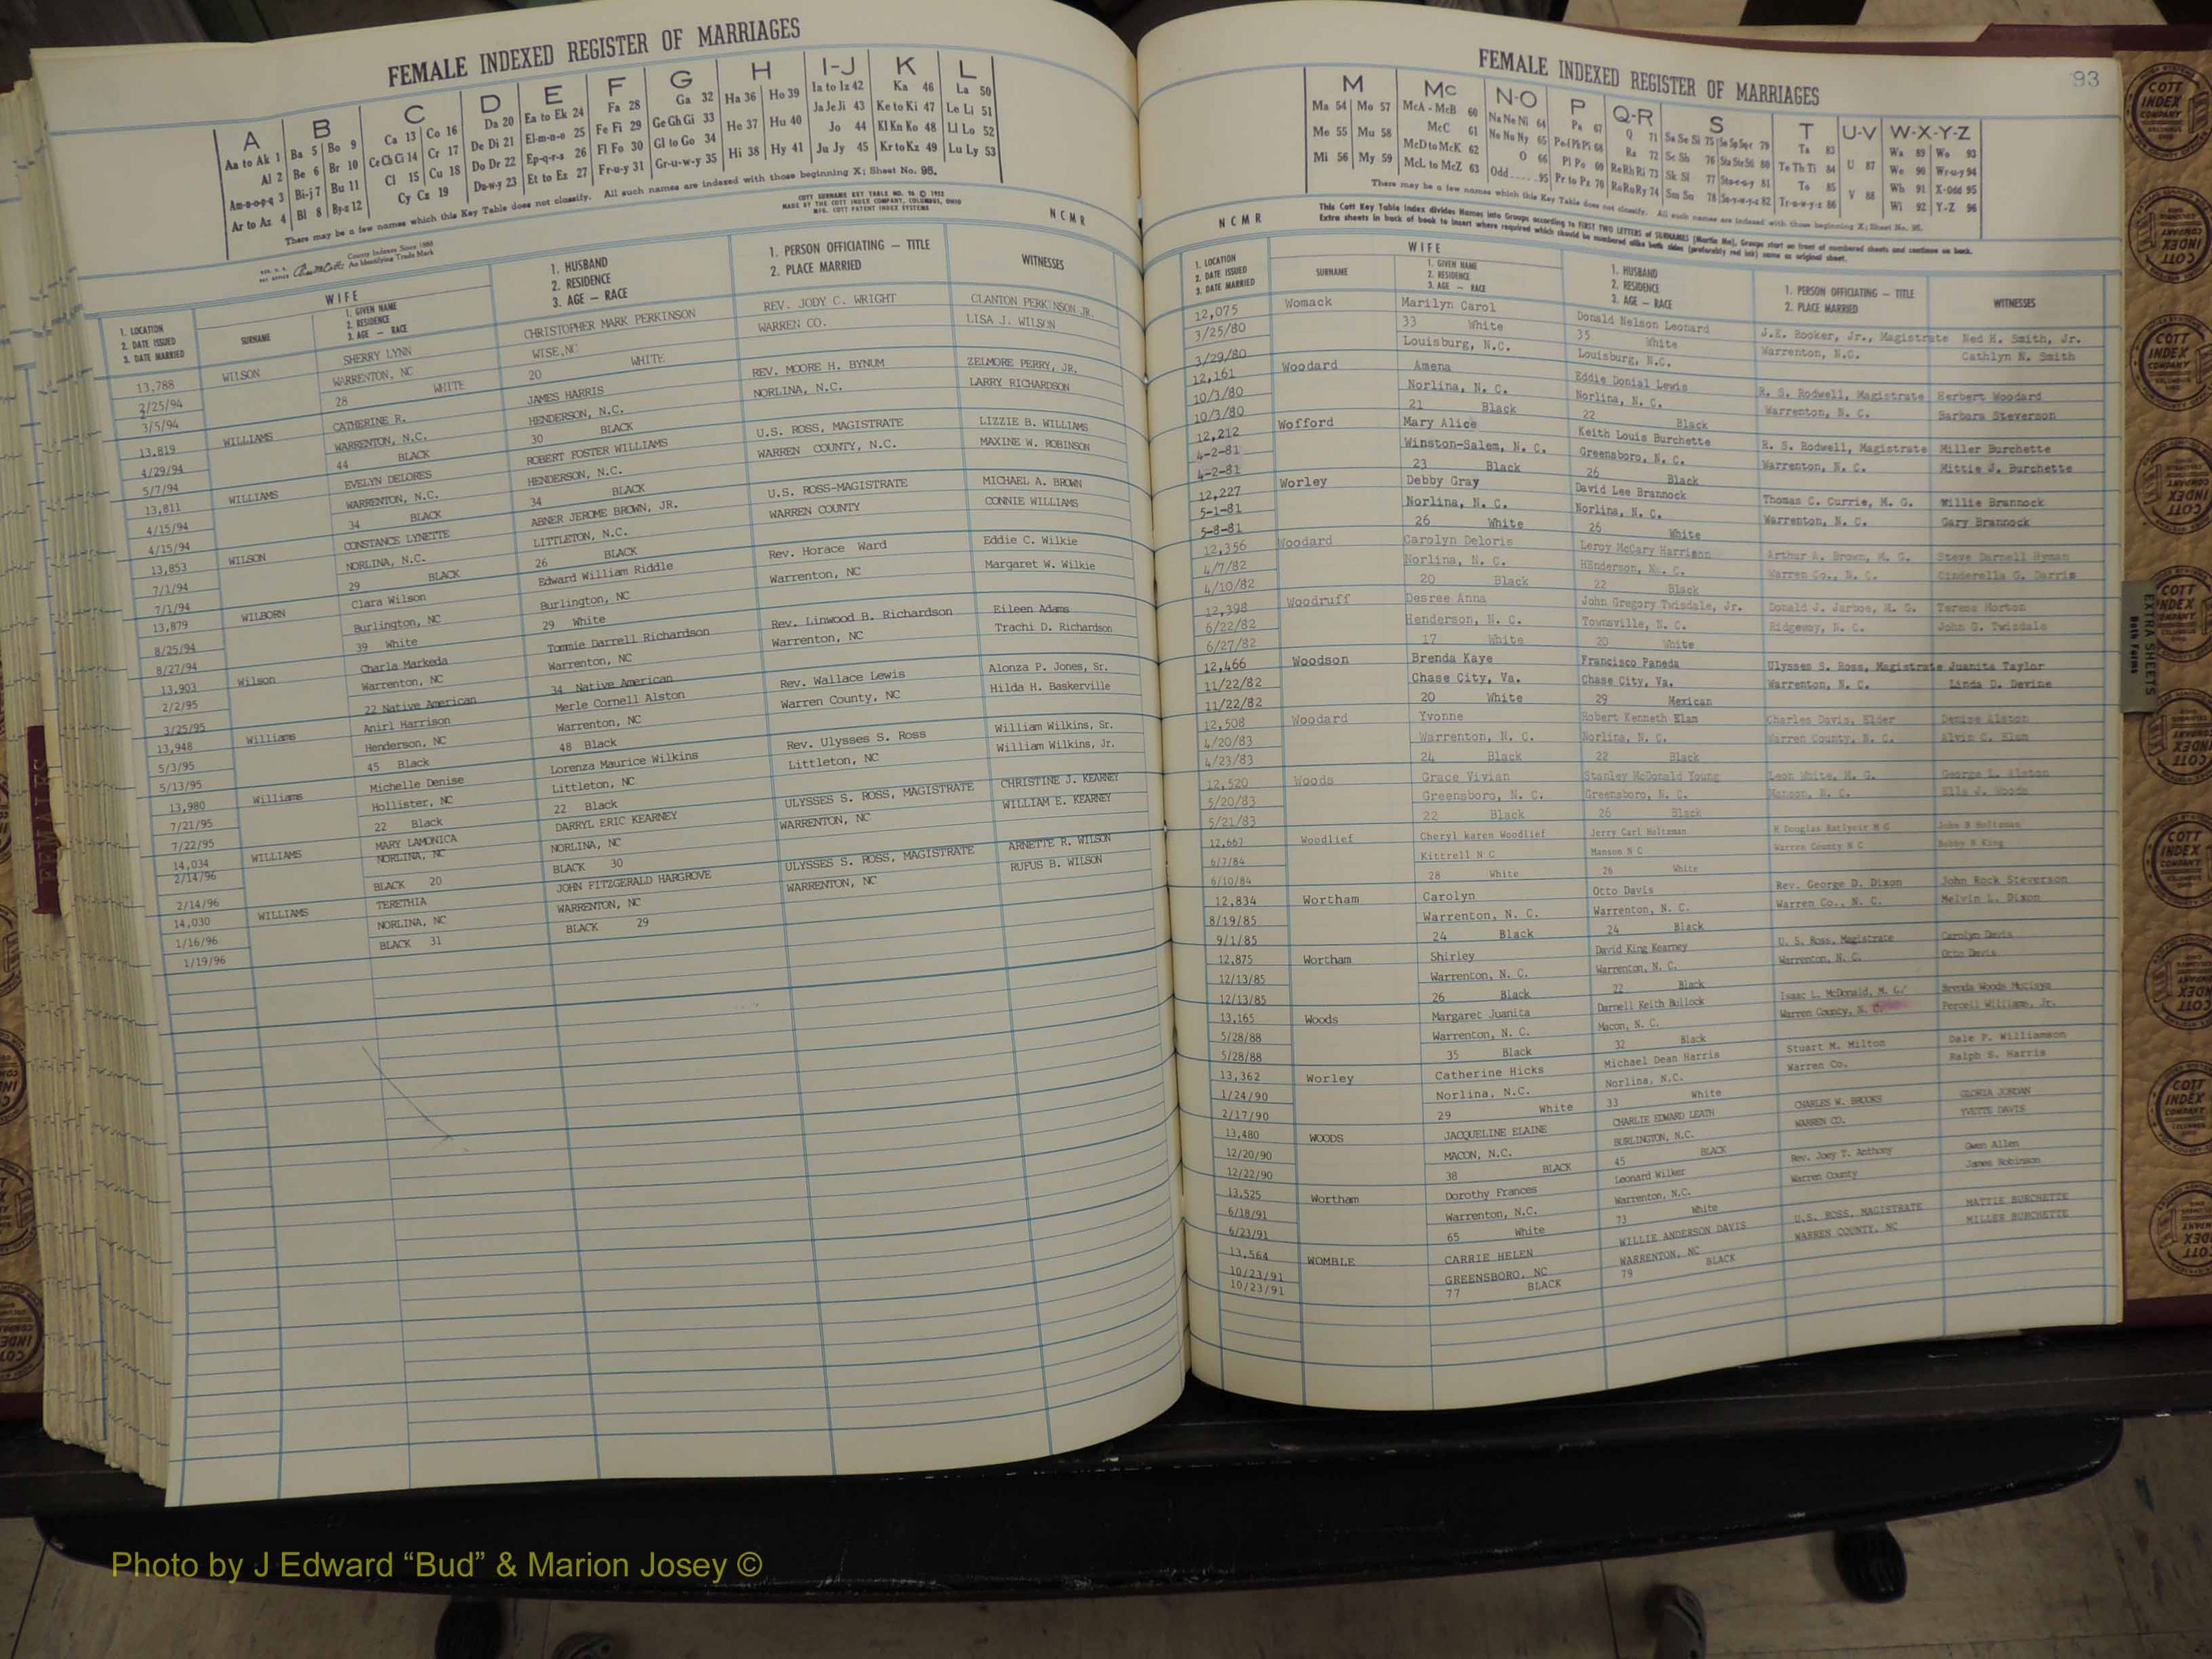 FEMALE INDEXED REGISTER OF MARRIAGES
A B C D E F G H I-J K L
Aa to Ak 1 Ba 5 Bo 9 Ca 13 Co 16 Da 20 Ea to Ek 24 Fa 28 Ga 32 Ha 36 Ho 39 Ia to Iz 42 Ka 46 La 50
Al 2 Be 6 Br 10 Ce Ch Ci 14 Cr 17 De Di 21 El-m-n-o 25 Fe Fi 29 Ge Gh Gi 33 He 37 Hu 40 Ja Je Ji 43 Ke to Ki 47 Le Li 51
Am-n-o-p-q 3 Bi-j 7 Bu 11 Cl 15 Cu 18 Do Dr 22 Ep-q-r-s 26 Fl Fo 30 Gl to Go 34 Hi 38 Hy 41 Jo 44 Kl Kn Ko 48 Ll Lo 52
Ar to Az 4 Bl 8 By-z 12 Cy Cz 19 Du-w-y 23 Et to Ez 27 Fr-u-y 31 Gr-u-w-y 35 Ju Jy 45 Kr to Kz 49 Lu Ly 53
There may be a few names which this Key Table does not classify. All such names are indexed with those beginning X; Sheet No. 95.
COTT SURNAME KEY TABLE NO. 96 © 1952
MADE BY THE COTT INDEX COMPANY, COLUMBUS, OHIO
MFG. COTT PATENT INDEX SYSTEMS
County Indexes Since 1888
An Identifying Trade Mark
N C M R
1. LOCATION
2. DATE ISSUED
3. DATE MARRIED
WIFE
SURNAME
1. GIVEN NAME
2. RESIDENCE
3. AGE — RACE
1. HUSBAND
2. RESIDENCE
3. AGE — RACE
1. PERSON OFFICIATING — TITLE
2. PLACE MARRIED
WITNESSES
13,788 WILSON SHERRY LYNN CHRISTOPHER MARK PERKINSON REV. JODY C. WRIGHT CLANTON PERKINSON JR.
2/25/94 WARRENTON, NC WISE,NC WARREN CO. LISA J. WILSON
3/5/94 28 WHITE 20 WHITE
13,819 WILLIAMS CATHERINE R. JAMES HARRIS REV. MOORE H. BYNUM ZELMORE PERRY, JR.
4/29/94 WARRENTON, N.C. HENDERSON, N.C. NORLINA, N.C. LARRY RICHARDSON
5/7/94 44 BLACK 30 BLACK
13,811 WILLIAMS EVELYN DELORES ROBERT FOSTER WILLIAMS U.S. ROSS, MAGISTRATE LIZZIE B. WILLIAMS
4/15/94 WARRENTON, N.C. HENDERSON, N.C. WARREN COUNTY, N.C. MAXINE W. ROBINSON
4/15/94 34 BLACK 34 BLACK
13,853 WILSON CONSTANCE LYNETTE ABNER JEROME BROWN, JR. U.S. ROSS-MAGISTRATE MICHAEL A. BROWN
7/1/94 NORLINA, N.C. LITTLETON, N.C. WARREN COUNTY CONNIE WILLIAMS
7/1/94 29 BLACK 26 BLACK
13,879 WILBORN Clara Wilson Edward William Riddle Rev. Horace Ward Eddie C. Wilkie
8/25/94 Burlington, NC Burlington, NC Warrenton, NC Margaret W. Wilkie
8/27/94 39 White 29 White
13,903 Wilson Charla Markeda Tommie Darrell Richardson Rev. Linwood B. Richardson Eileen Adams
2/2/95 Warrenton, NC Warrenton, NC Warrenton, NC Trachi D. Richardson
3/25/95 22 Native American 34 Native American
13,948 Williams Anirl Harrison Merle Cornell Alston Rev. Wallace Lewis Alonza P. Jones, Sr.
5/3/95 Henderson, NC Warrenton, NC Warren County, NC Hilda H. Baskerville
5/13/95 45 Black 48 Black
13,980 Williams Michelle Denise Lorenza Maurice Wilkins Rev. Ulysses S. Ross William Wilkins, Sr.
7/21/95 Hollister, NC Littleton, NC Littleton, NC William Wilkins, Jr.
7/22/95 22 Black 22 Black
14,034 WILLIAMS MARY LAMONICA DARRYL ERIC KEARNEY ULYSSES S. ROSS, MAGISTRATE CHRISTINE J. KEARNEY
2/14/96 NORLINA, NC NORLINA, NC WARRENTON, NC WILLIAM E. KEARNEY
2/14/96 BLACK 20 BLACK 30
14,030 WILLIAMS TERETHIA JOHN FITZGERALD HARGROVE ULYSSES S. ROSS, MAGISTRATE ARNETTE R. WILSON
1/16/96 NORLINA, NC WARRENTON, NC WARRENTON, NC RUFUS B. WILSON
1/19/96 BLACK 31 BLACK 29
FEMALES
FEMALE INDEXED REGISTER OF MARRIAGES
93
M Mc N-O P Q-R S T U-V W-X-Y-Z
Ma 54 Mo 57 McA - McB 60 Na Ne Ni 64 Pa 67 Q 71 Sa Se Si 75 So Sp Sq-r 79 Ta 83 U 87 Wa 89 Wo 93
Me 55 Mu 58 McC 61 No Nu Ny 65 Pe-f Ph Pi 68 Ra 72 Sc Sh 76 Sta Ste Sti 80 Te Th Ti 84 V 88 We 90 Wr-u-y 94
Mi 56 My 59 McD to McK 62 O 66 Pl Po 69 Re Rh Ri 73 Sk Sl 77 Sto-r-u-y 81 To 85 Wh 91 X-Odd 95
McL to McZ 63 Odd 95 Pr to Pz 70 Ro Ru Ry 74 Sm Sn 78 Su-v-w-y-z 82 Tr-u-w-y-z 86 Wi 92 Y-Z 96
There may be a few names which this Key Table does not classify. All such names are indexed with those beginning X; Sheet No. 95.
This Cott Key Table Index divides Names into Groups according to FIRST TWO LETTERS of SURNAMES (Martin Ma), Groups start on front of numbered sheets and continue on back.
Extra sheets in back of book to insert where required which should be numbered alike both sides (preferably red ink) same as original sheet.
N C M R
1. LOCATION
2. DATE ISSUED
3. DATE MARRIED
WIFE
SURNAME
1. GIVEN NAME
2. RESIDENCE
3. AGE — RACE
1. HUSBAND
2. RESIDENCE
3. AGE — RACE
1. PERSON OFFICIATING — TITLE
2. PLACE MARRIED
WITNESSES
12,075 Womack Marilyn Carol Donald Nelson Leonard J.E. Rooker, Jr., Magistrate Ned H. Smith, Jr.
3/25/80 33 White 35 White Warrenton, N.C. Cathlyn N. Smith
3/29/80 Louisburg, N.C. Louisburg, N.C.
12,161 Woodard Amena Eddie Donial Lewis R. S. Rodwell, Magistrate Herbert Woodard
10/3/80 Norlina, N. C. Norlina, N. C. Warrenton, N. C. Barbara Steverson
10/3/80 21 Black 22 Black
12,212 Wofford Mary Alice Keith Louis Burchette R. S. Rodwell, Magistrate Miller Burchette
4-2-81 Winston-Salem, N. C. Greensboro, N. C. Warrenton, N. C. Mittie J. Burchette
4-2-81 23 Black 26 Black
12,227 Worley Debby Gray David Lee Brannock Thomas C. Currie, M. G. Willie Brannock
5-1-81 Norlina, N. C. Norlina, N. C. Warrenton, N. C. Gary Brannock
5-8-81 26 White 26 White
12,356 Woodard Carolyn Deloris Leroy McCary Harrison Arthur A. Brown, M. G. Steve Darnell Hyman
4/7/82 Norlina, N. C. Henderson, N. C. Warren Co., N. C. Cinderella G. Darris
4/10/82 20 Black 22 Black
12,398 Woodruff Desree Anna John Gregory Twisdale, Jr. Donald J. Jarboe, M. G. Teresa Horton
6/22/82 Henderson, N. C. Townsville, N. C. Ridgeway, N. C. John G. Twisdale
6/27/82 17 White 20 White
12,466 Woodson Brenda Kaye Francisco Paneda Ulysses S. Ross, Magistrate Juanita Taylor
11/22/82 Chase City, Va. Chase City, Va. Warrenton, N. C. Linda D. Devine
11/22/82 20 White 29 Mexican
12,508 Woodard Yvonne Robert Kenneth Elam Charles Davis, Elder Denise Alston
4/20/83 Warrenton, N. C. Norlina, N. C. Warren County, N. C. Alvin C. Elam
4/23/83 24 Black 22 Black
12,520 Woods Grace Vivian Stanley McDonald Young Leon White, M. G. George L. Alston
5/20/83 Greensboro, N. C. Greensboro, N. C. Manson, N. C. Ella J. Woods
5/21/83 22 Black 26 Black
12,667 Woodlief Cheryl karen Woodlief Jerry Carl Holtzman H Douglas Ratlyeir M G John B Holtzman
6/7/84 Kittrell N C Manson N C Warren County N C Bobby R King
6/10/84 28 White 26 White
12,834 Wortham Carolyn Otto Davis Rev. George D. Dixon John Rock Steverson
8/19/85 Warrenton, N. C. Warrenton, N. C. Warren Co., N. C. Melvin L. Dixon
9/1/85 24 Black 24 Black
12,875 Wortham Shirley David King Kearney U. S. Ross, Magistrate Carolyn Davis
12/13/85 Warrenton, N. C. Warrenton, N. C. Warrenton, N. C. Otto Davis
12/13/85 26 Black 22 Black
13,165 Woods Margaret Juanita Darnell Keith Bullock Isaac L. McDonald, M. G. Brenda Woods
5/28/88 Warrenton, N. C. Macon, N. C. Warren County, N. C. Percell Williams, Jr.
5/28/88 35 Black 32 Black
13,362 Worley Catherine Hicks Michael Dean Harris Stuart M. Milton Dale P. Williamson
1/24/90 Norlina, N.C. Norlina, N.C. Warren Co. Ralph S. Harris
2/17/90 29 White 33 White
13,480 WOODS JACQUELINE ELAINE CHARLIE EDWARD LEATH CHARLES W. BROOKS GLORIA JORDAN
12/20/90 MACON, N.C. BURLINGTON, N.C. WARREN CO. YVETTE DAVIS
12/22/90 38 BLACK 45 BLACK
13,525 Wortham Dorothy Frances Leonard Wilker Rev. Joey T. Anthony Gwen Allen
6/18/91 Warrenton, N.C. Warrenton, N.C. Warren County James Robinson
6/23/91 65 White 73 White
13,564 WOMBLE CARRIE HELEN WILLIE ANDERSON DAVIS U.S. ROSS, MAGISTRATE MATTIE BURCHETTE
10/23/91 GREENSBORO, NC WARRENTON, NC WARREN COUNTY, NC MILLER BURCHETTE
10/23/91 77 BLACK 79 BLACK
EXTRA SHEETS
Both Forms
COTT
INDEX
COMPANY
Photo by J Edward “Bud” & Marion Josey ©